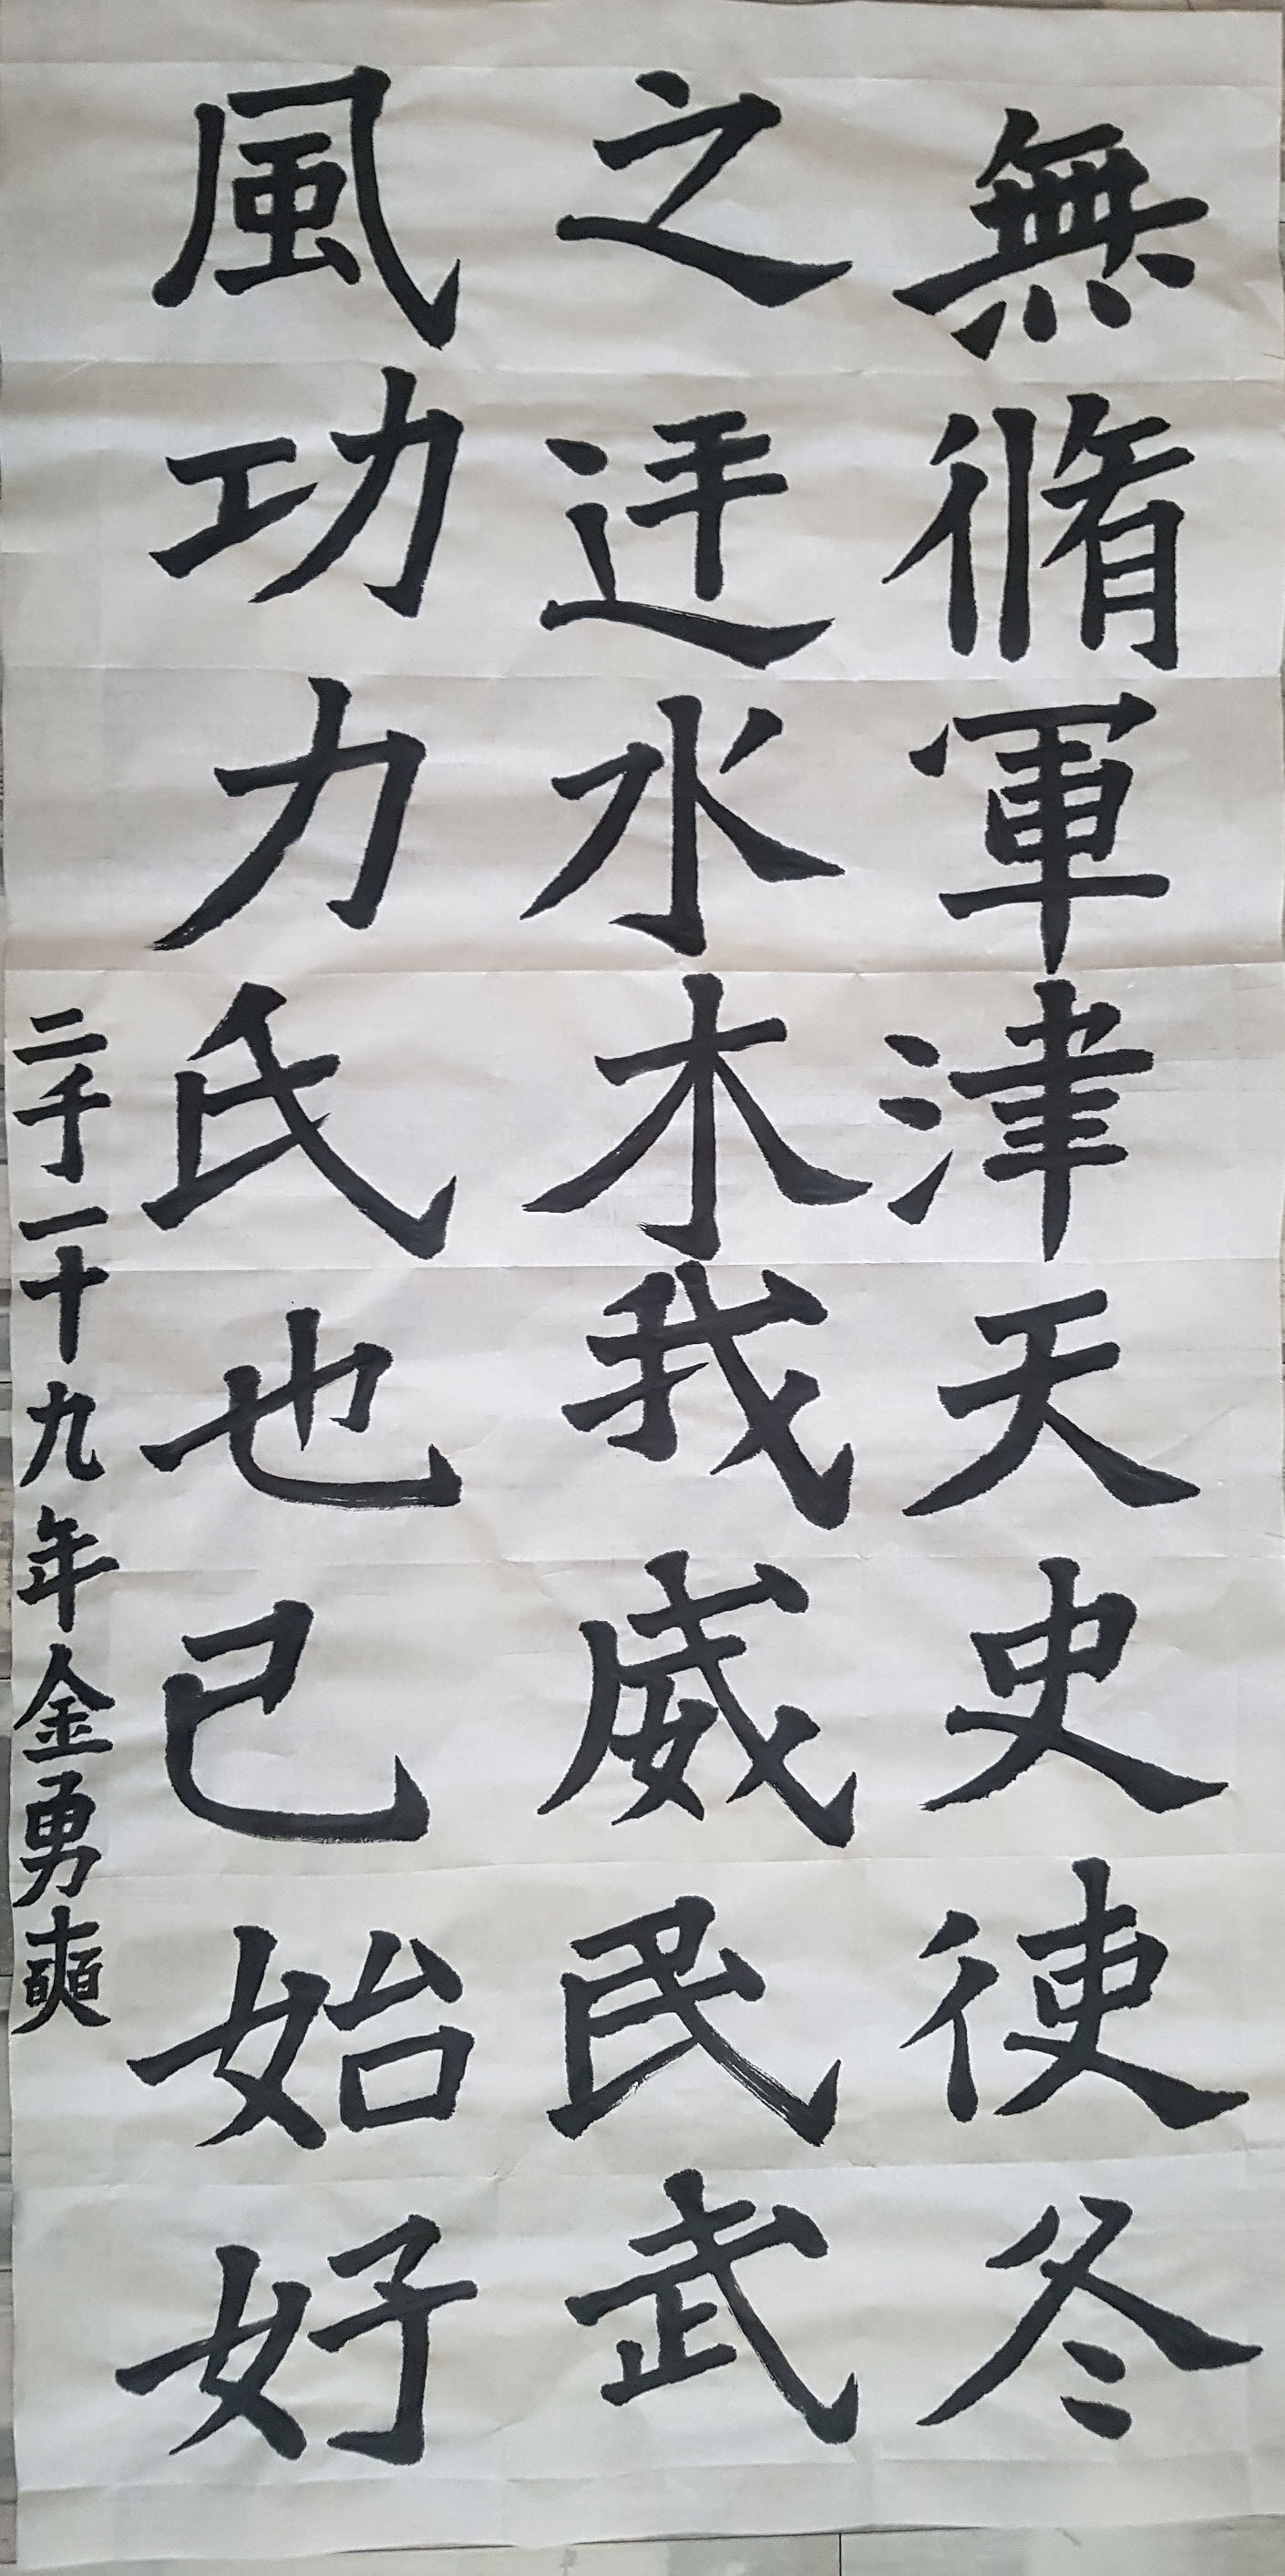 無脩軍津天史使冬
之迂水木我威民武
風功力氏也已始好
二千一十九年金勇奭